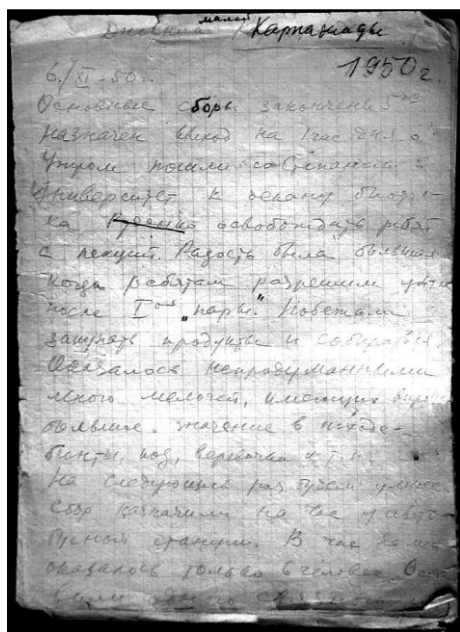 Дневник малой Карпатиады
1950 г.
6/XI-50 г.
Основные сборы закончены 5го
назначен выход на 1 час дня. 6
Утром пошли со Степаном в
Университет к декану биофа-
ка Руденко освобождать ребят
с лекций. Радость была большая
когда ребятам разрешили уйти
после Iой "пары". Побежали
закупать продукты и собираться.
Оказалось непродуманными
много мелочей, имеющих
большое значение в походе-
бинты, иод, веревочки и т.п.
На следующий раз будем умнее.
Сбор назначили на час у авто-
бусной станции. В час
оказалось только 6 человек.